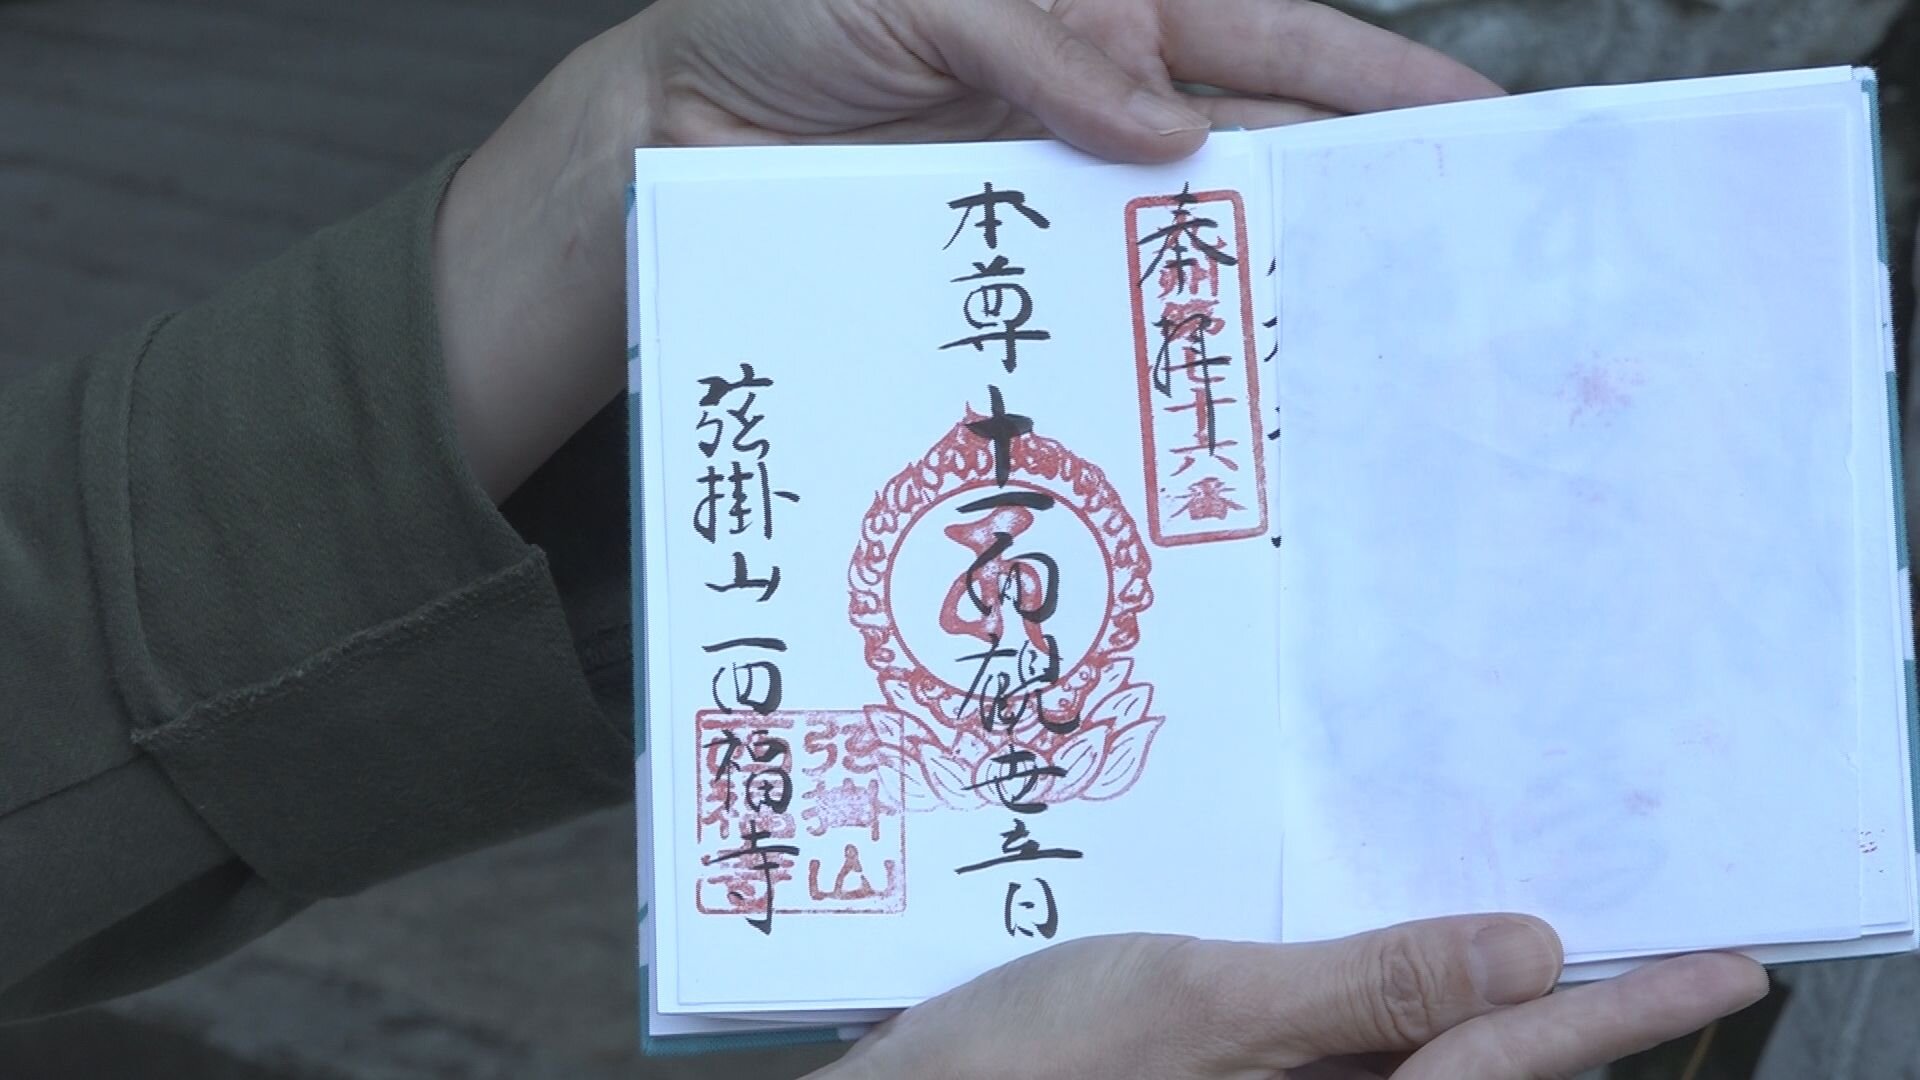 奉拝
九州第七十六番
本尊十一面觀世音
弦掛山西福寺
弦掛山
西福寺